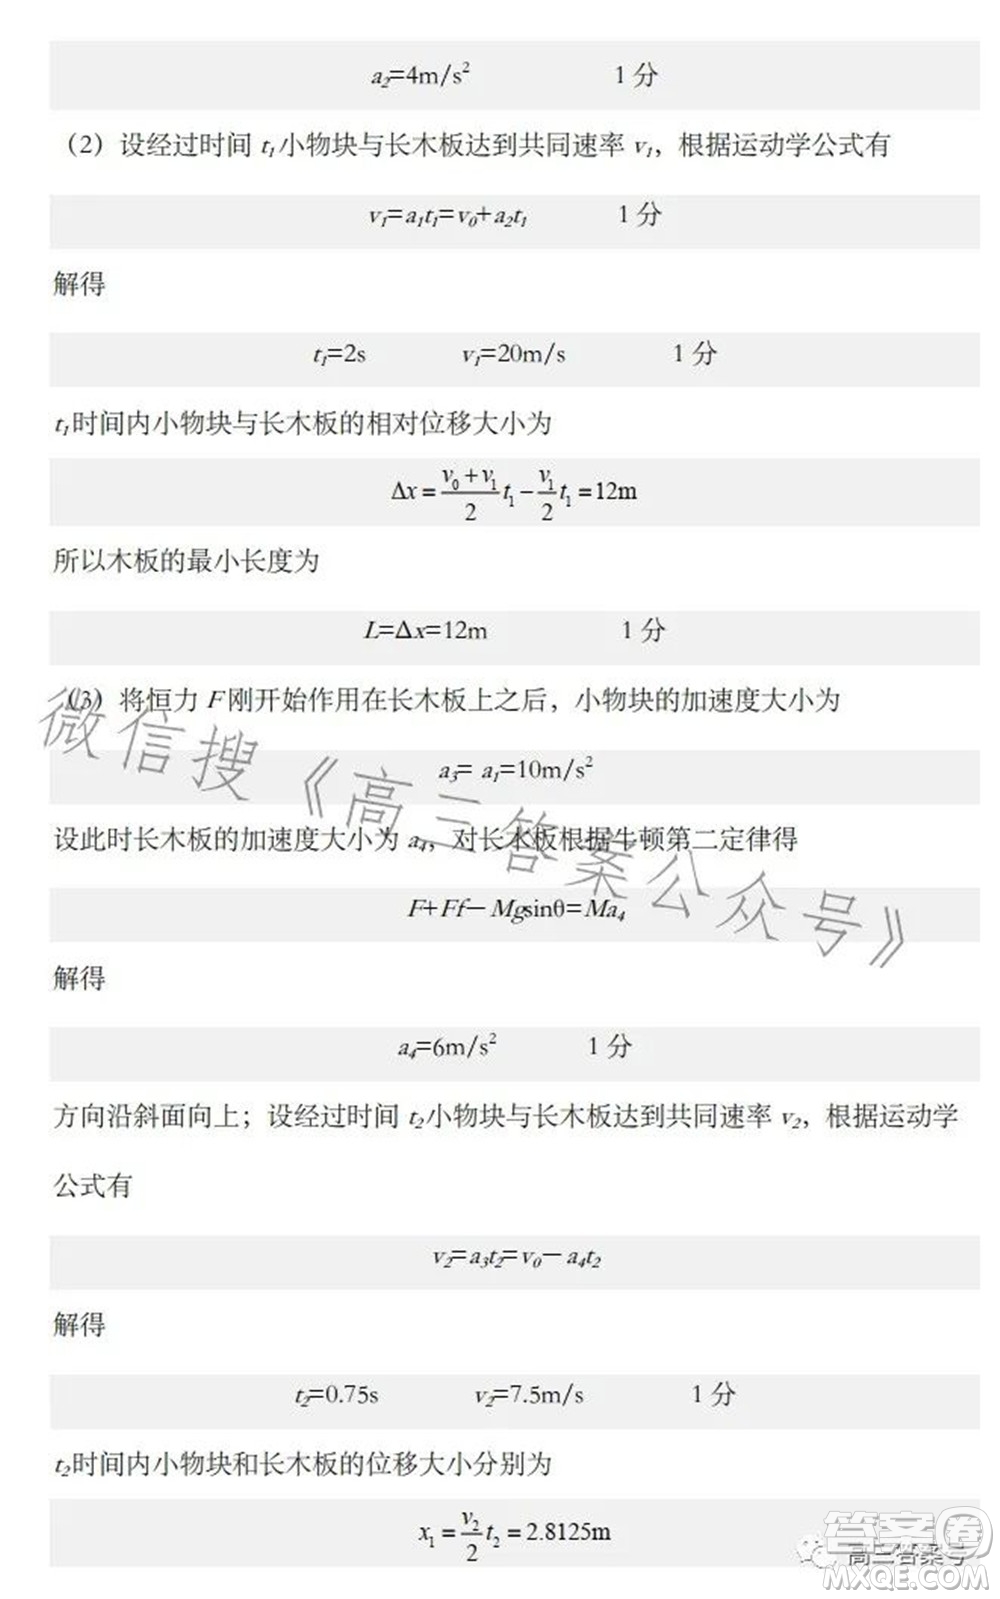 a₂=4m/s² 1 分
（2）设经过时间 t₁小物块与长木板达到共同速率 v₁，根据运动学公式有
v₁=a₁t₁=v₀+a₂t₁ 1 分
解得
t₁=2s v₁=20m/s 1 分
t₁时间内小物块与长木板的相对位移大小为
Δx=(v₀+v₁)/2 t₁−v₁/2 t₁=12m
所以木板的最小长度为
L=Δx=12m 1 分
（3）将恒力 F刚开始作用在长木板上之后，小物块的加速度大小为
a₃= a₁=10m/s²
设此时长木板的加速度大小为 a₄，对长木板根据牛顿第二定律得
F+Ff−Mgsinθ=Ma₄
解得
a₄=6m/s² 1 分
方向沿斜面向上；设经过时间 t₂小物块与长木板达到共同速率 v₂，根据运动学
公式有
v₂=a₃t₂=v₀−a₄t₂
解得
t₂=0.75s v₂=7.5m/s 1 分
t₂时间内小物块和长木板的位移大小分别为
x₁=v₂/2 t₂=2.8125m
微信搜《高三答案公众号》
高三答案号
答案圈
MXQE.COM